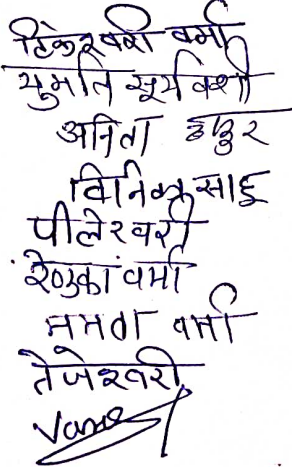 टिकेश्वरी वर्मा
सुमति सूर्यवंशी
अनिता ठाकुर
साहू
पीलेश्वरी
रेणुका वर्मा
ममता वर्मा
तेजेश्वरी